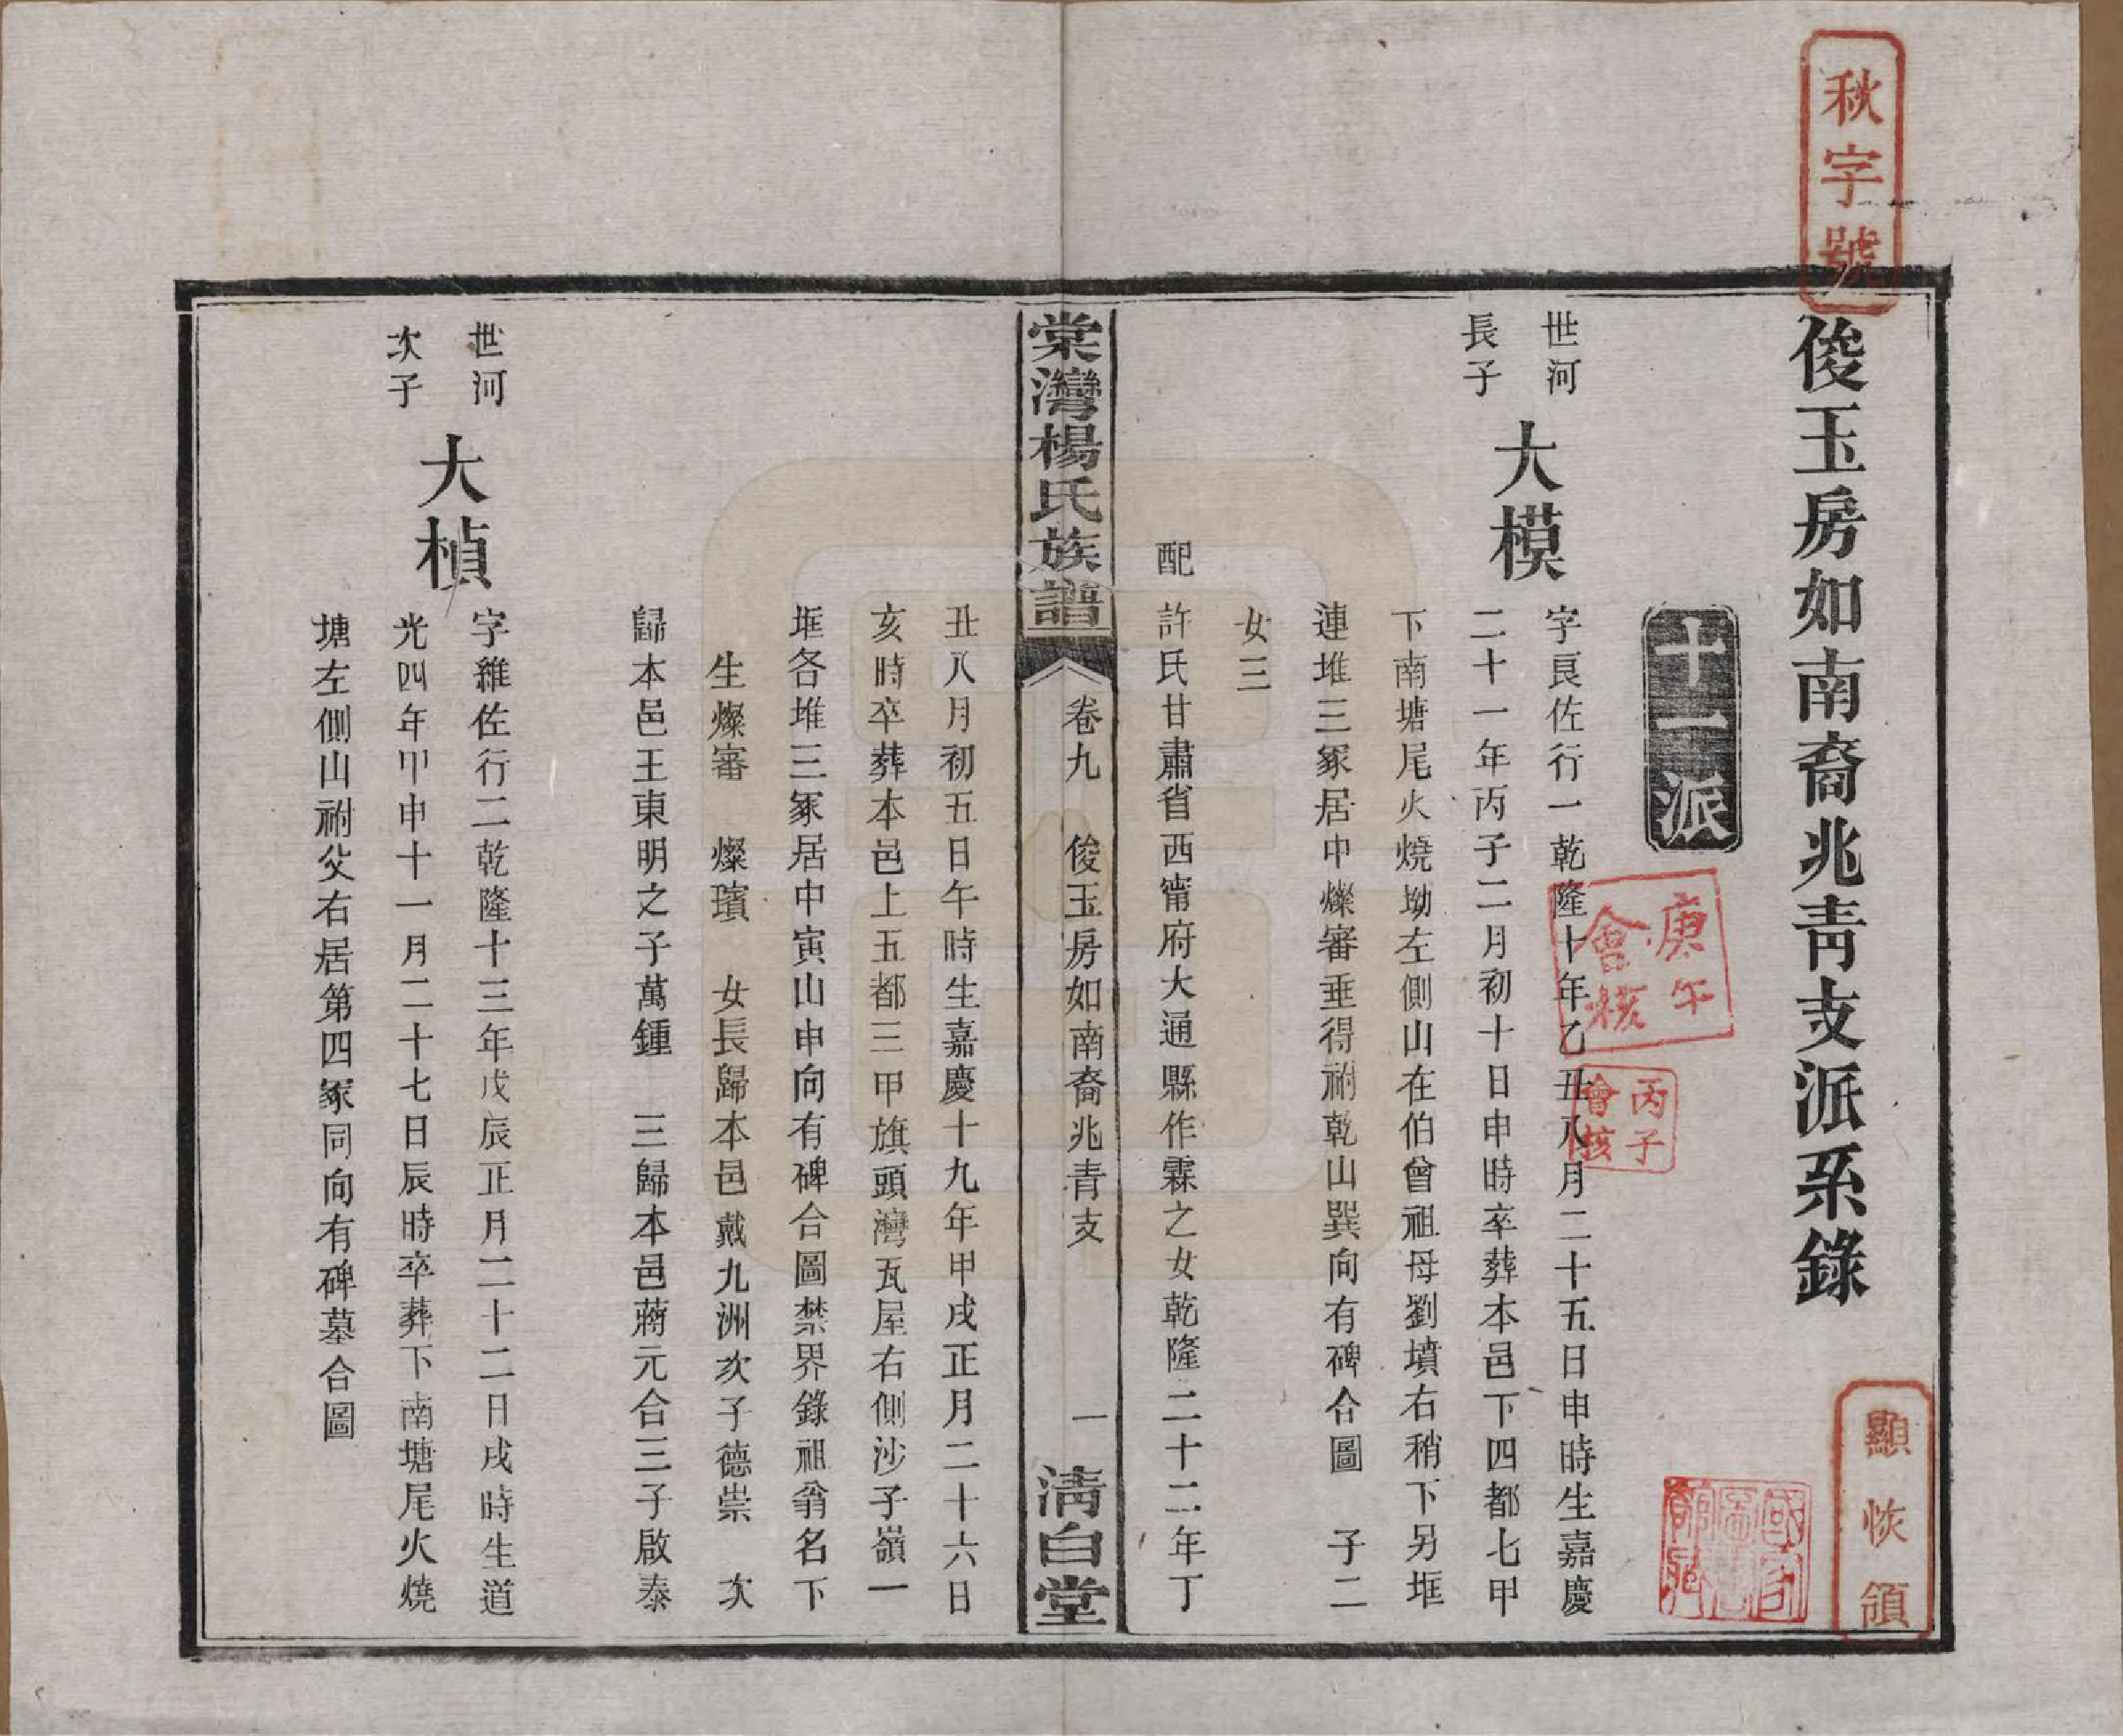 秋字號
俊玉房如南裔兆靑支派系錄
顯恢領
國家圖書館藏
十一派
庚午會核
丙子會核
世河
長子
大模
字良佐行一乾隆十年乙丑八月二十五日申時生嘉慶
二十一年丙子二月初十日申時卒葬本邑下四都七甲
下南塘尾火燒坳左側山在伯曾祖母劉墳右稍下另堆
連堆三冢居中燦審垂得祔乾山巽向有碑合圖　子二
女三
配
許氏甘肅省西甯府大通縣作霖之女乾隆二十二年丁
棠灣楊氏族譜
卷九　俊玉房如南裔兆青支　一
淸白堂
丑八月初五日午時生嘉慶十九年甲戌正月二十六日
亥時卒葬本邑上五都三甲旗頭灣瓦屋右側沙子嶺一
堆各堆三冢居中寅山申向有碑合圖禁界錄祖翁名下
生燦審　燦璸　女長歸本邑戴九洲次子德崇　次
歸本邑王東明之子萬鍾　三歸本邑蔣元合三子啟泰
世河
次子
大楨
字維佐行二乾隆十三年戊辰正月二十二日戌時生道
光四年甲申十一月二十七日辰時卒葬下南塘尾火燒
塘左側山祔父右居第四冢同向有碑墓合圖